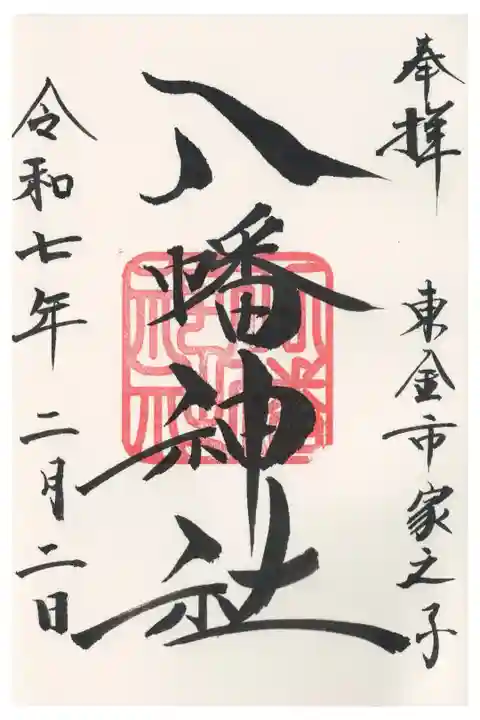 奉拝
東金市家之子
八幡神社
令和七年二月二日